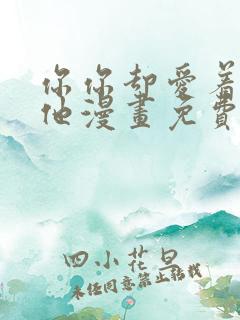 你你却愛着
他漫畫免費
四小花旦
未经同意禁止转载